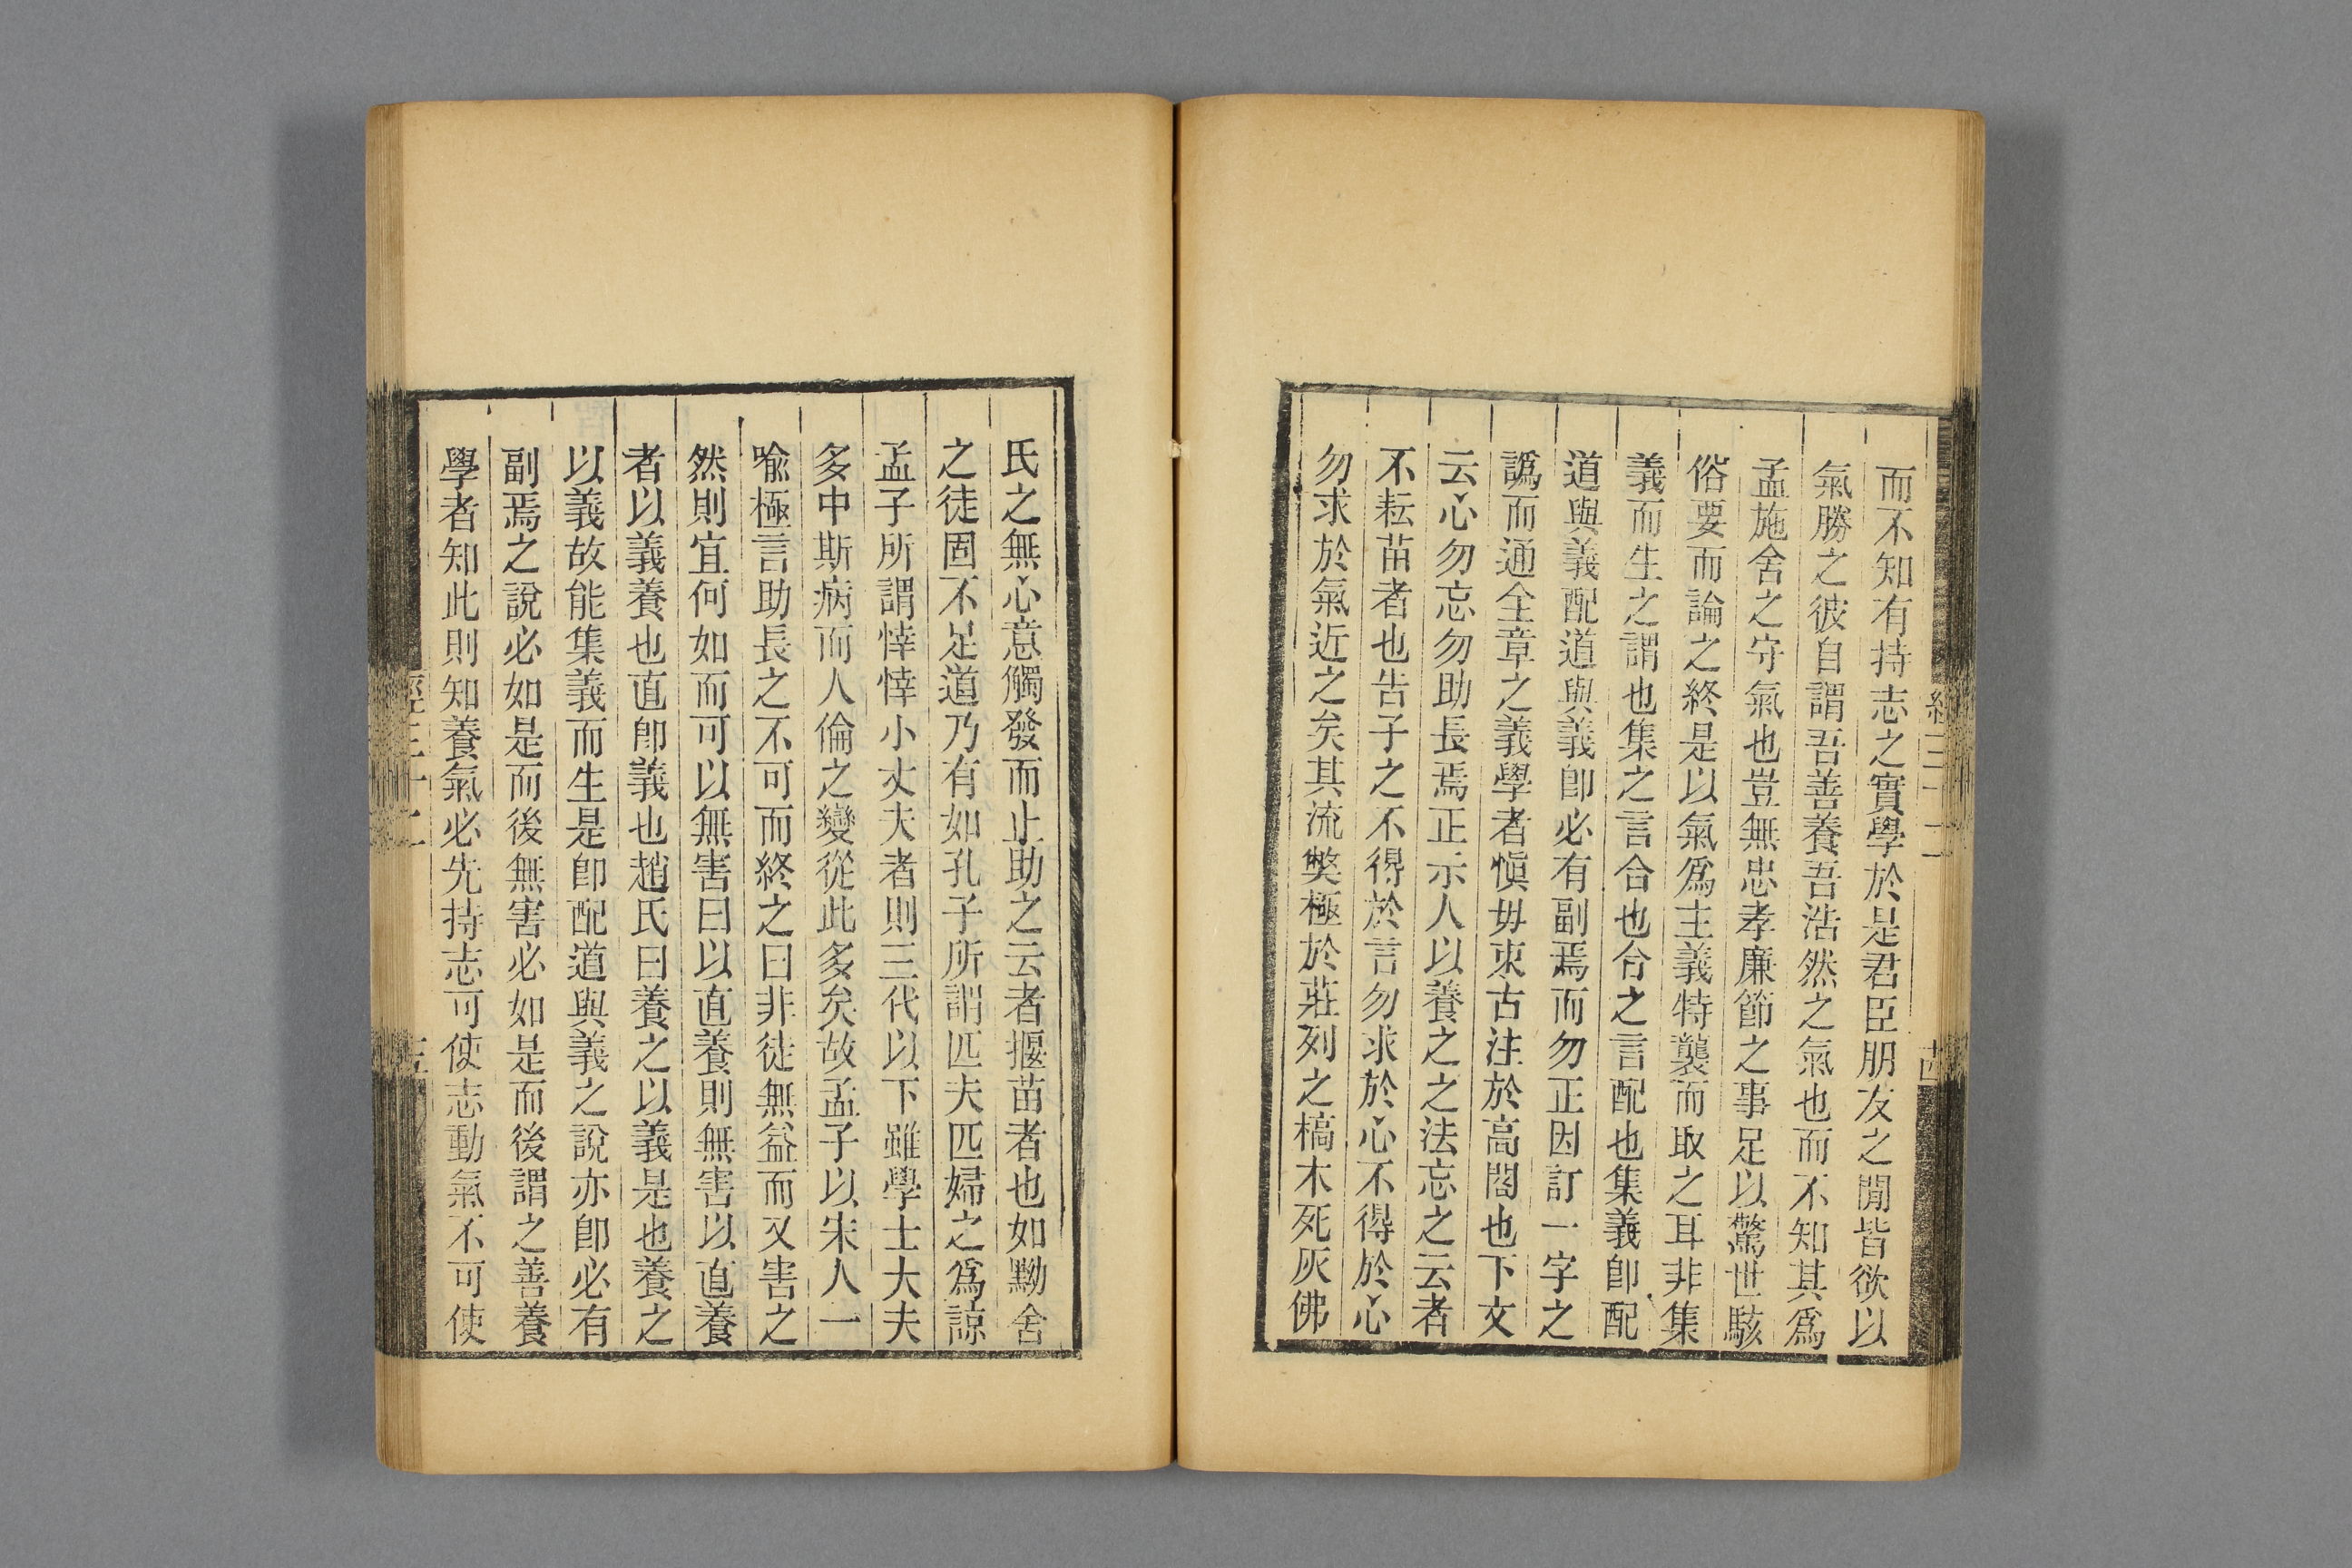 而不知有持志之實學於是君臣朋友之閒皆欲以
氣勝之彼自謂吾善養吾浩然之氣也而不知其爲
孟施舍之守氣也豈無忠孝廉節之事足以驚世駭
俗要而論之終是以氣爲主義特襲而取之耳非集
義而生之謂也集之言合也合之言配也集義卽配
道與義配道與義卽必有副焉而勿正因訂一字之
譌而通全章之義學者愼毋束古注於高閣也下文
云心勿忘勿助長焉正示人以養之之法忘之云者
不耘苗者也告子之不得於言勿求於心不得於心
勿求於氣近之矣其流獘極於莊列之槁木死灰佛
氏之無心意觸發而止助之云者揠苗者也如黝舍
之徒固不足道乃有如孔子所謂匹夫匹婦之爲諒
孟子所謂悻悻小丈夫者則三代以下雖學士大夫
多中斯病而人倫之變從此多矣故孟子以宋人一
喻極言助長之不可而終之曰非徒無益而又害之
然則宜何如而可以無害曰以直養則無害以直養
者以義養也直卽義也趙氏曰養之以義是也養之
以義故能集義而生是卽配道與義之說亦卽必有
副焉之說必如是而後無害必如是而後謂之善養
學者知此則知養氣必先持志可使志動氣不可使
經三十二